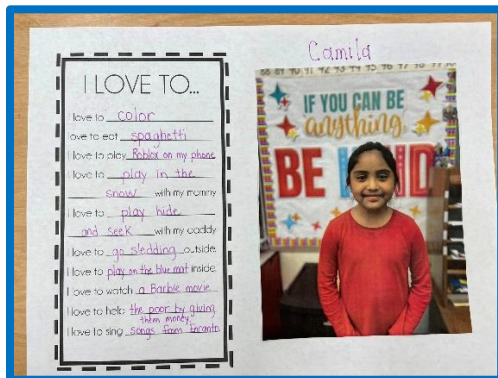 Camila
I LOVE TO...
I love to color
I love to eat spaghetti
I love to play Roblox on my phone
I love to play in the
snow with my mommy
I love to play hide
and seek with my daddy
I love to go sledding outside
I love to play on the blue mat inside
I love to watch a Barbie movie
I love to help the poor by giving
them money
I love to sing songs from Encanto
IF YOU CAN BE
anything
BE KIND